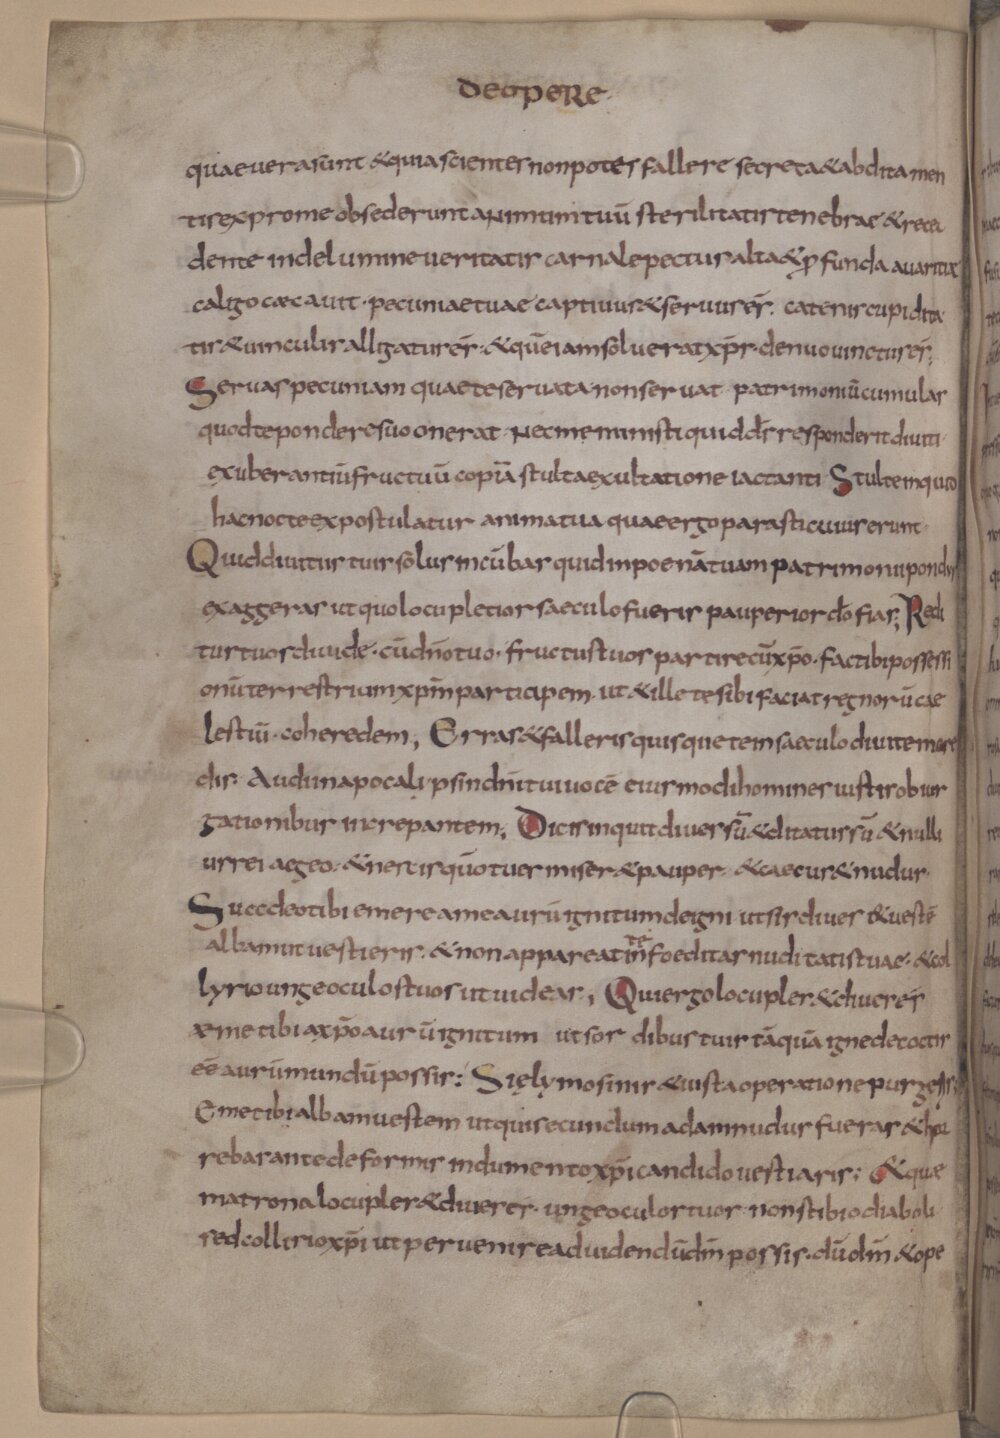 De opere
quae vera sunt & quia scientes non potes fallere secreta & abdita men
tis exprome obsederunt animum tuū sterilitatis tenebrae & rece
dente inde lumine veritatis carnale pectus alta & profunda avaritiae
caligo caecavit · pecuniae tuae captivus & servus es̄ · catenis cupidita
tis & vinculis alligatus es̄ · & quē iam solverat xp̄s · denuo vinctus es̄ ;
Servas pecuniam quae te servata non servat · patrimoniū cumulas
quod te pondere suo onerat · nec meministi quid ds̄ responderit diviti
exuberantiū fructuū copiā stulta exultatione iactanti · Stulte inquid
hac nocte expostulatur anima tua quae ergo parasti cuius erunt ·
Quid divitiis tuis solus incūbas quid in poenā tuam patrimonii pondus
exaggeras ut quo locupletior saeculo fueris pauperior dō fias ; Redi
tus tuos divide · cū dn̄o tuo · fructus tuos partire cū xp̄o · fac tibi possessi
onū terrestrium xpm̄ participem · ut & ille te sibi faciat regnorū cae
lestiū · coheredem ; Erras & falleris quisque te in saeculo divitem cre
dis · Audi in apocalipsin dn̄i tui vocē eiusmodi homines iustis obiur
gationibus increpantem ; Dicis inquit dives sū & ditatus sū & nulli
us rei aegeo · & nescis quō tu es miser & pauper · & caecus & nudus
Succdeo tibi emere a me aurū ignitum de igni ut sis dives & vestē
albam ut vestieris · & non appareat in te foeditas nuditatis tuae · & col
lyrio unge oculos tuos ut videas ; Qui ergo locuples & dives es̄
aeme tibi a xp̄o aurū ignitum ut sor dibus tuis tāquā igne decoctis
eē aurū mundū possis : Si elymosinis & iusta operatione purgeris ;
Eme tibi albam vestem ut qui secundum adam nudus fueras & hor
rebas ante deformis indumento xp̄i candido vestiaris ; & quae
matrona locuples & dives es · unge oculos tuos · non stibio diaboli
sed collirio xp̄i ut pervenire ad videndū dm̄ possis · dū dm̄ & ope